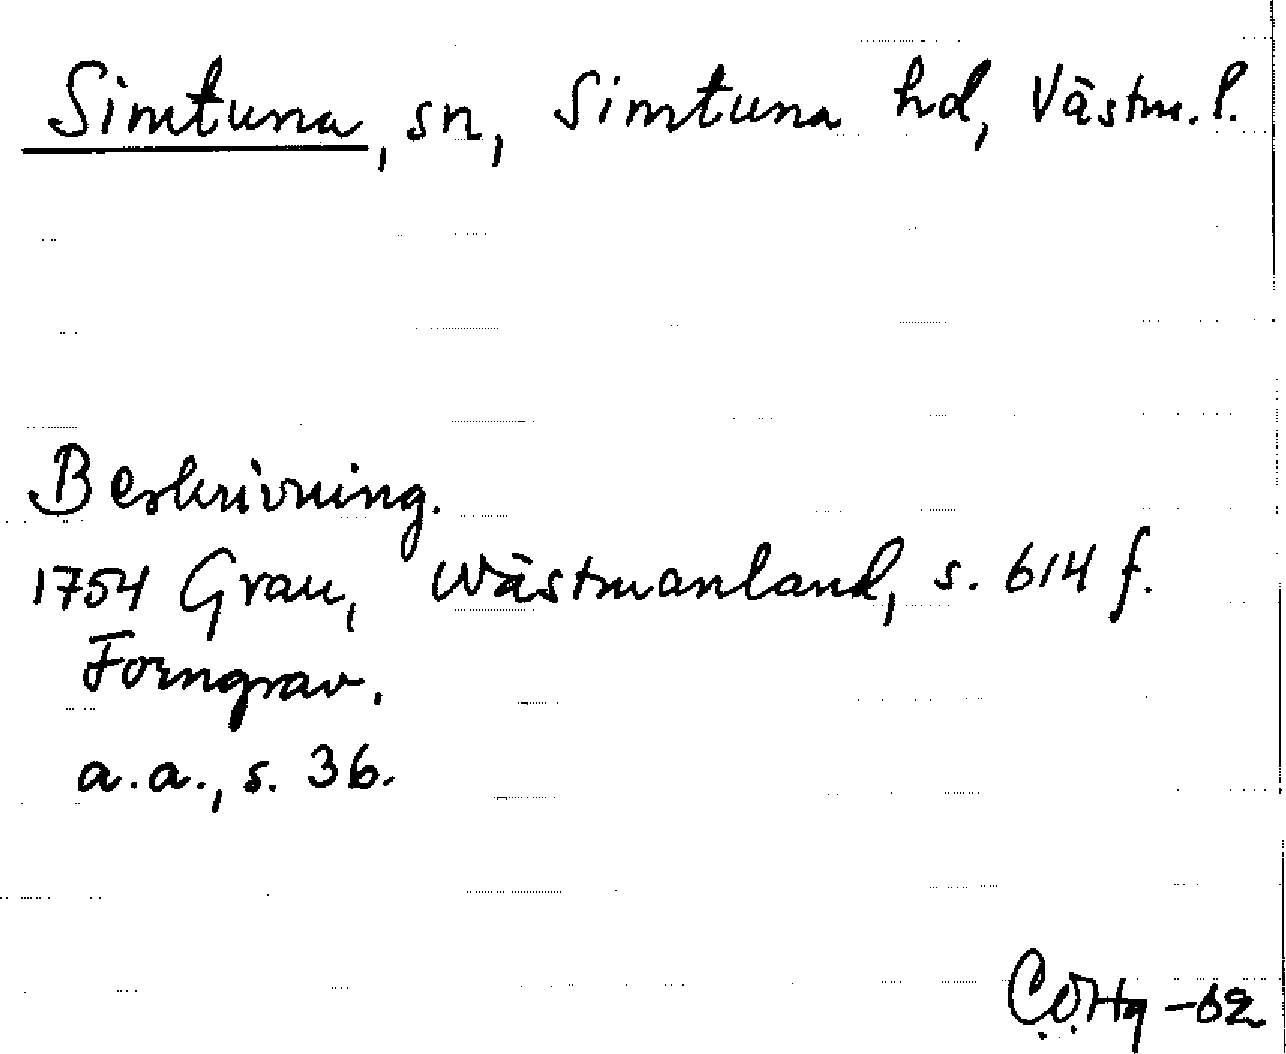 Simtuna, sn, Simtuna hd, Västm. l.
Beskrivning.
1754 Grau, Wästmanland, s. 614 f.
Forngrav.
a.a., s. 36.
-62